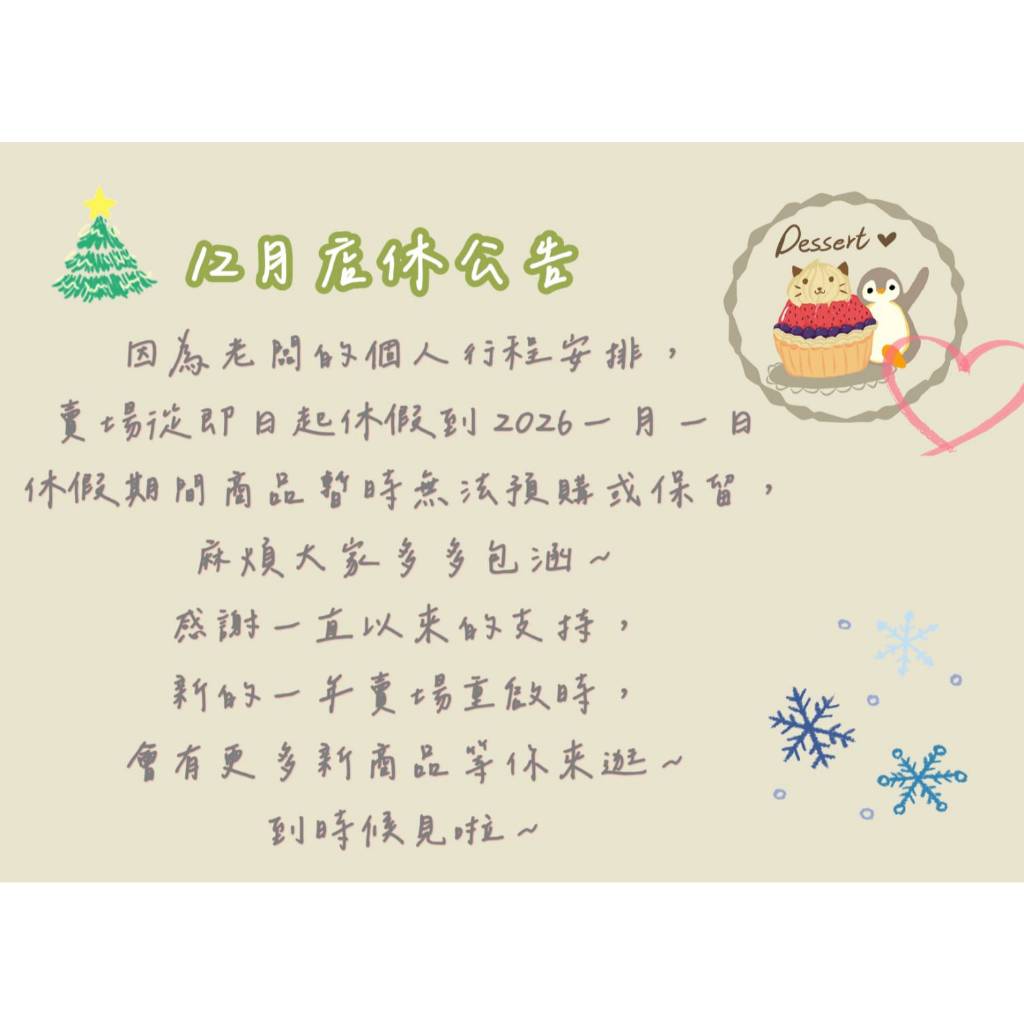 12月店休公告
Dessert
因為老闆的個人行程安排，
賣場從即日起休假到2026一月一日
休假期間商品暫時無法預購或保留，
麻煩大家多多包涵~
感謝一直以來的支持，
新的一年賣場重啟時，
會有更多新商品等你來逛~
到時候見啦~